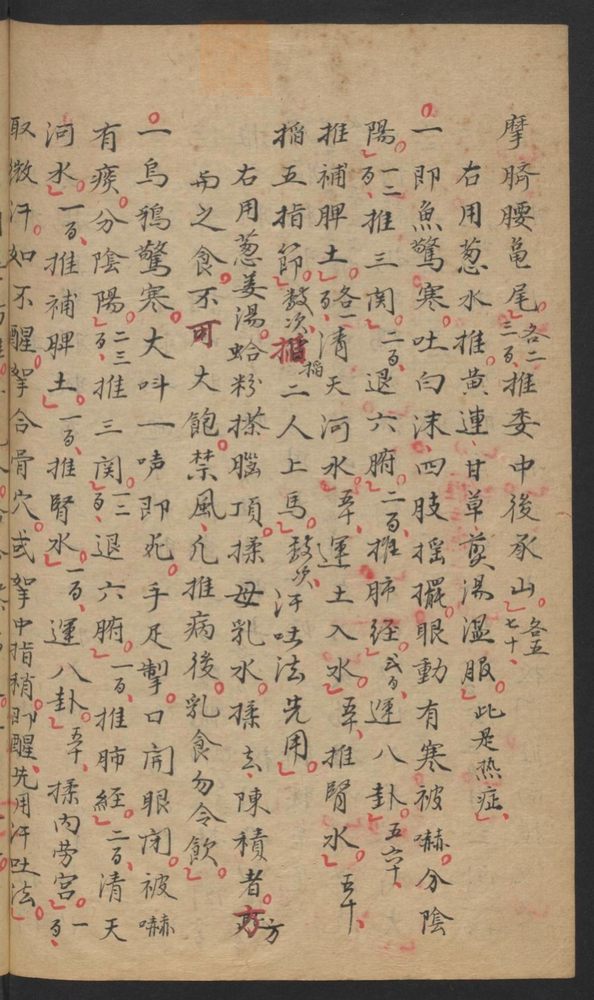 摩臍腰龟尾各二三百推委中後承山各五七十
右用葱水推黄連甘草煎湯溫服此是热症
一即魚驚寒吐白沫四肢揺擺眼動有寒被嚇分陰
陽一二百推三関二百退六腑二百推肺経弍百運八卦五六十
推補脾土各一百清天河水五十運土入水五十推腎水五十
掐五指節数次掐二人上馬数次汗吐法先用
右用葱姜湯蛤粉搽腦頂揉母乳水揉去陳積者方
与之食不可大飽禁風凡推病後乳食勿令飲
一烏鴉驚寒大呌一声即死手足掣口開眼闭被嚇
有痰分陰陽二三百推三関一二百退六腑一百推肺経二百清天
河水一百推補脾土一百推腎水一百運八卦五十揉内劳宮一百
取微汗如不醒拿合骨穴或拿中指稍即醒先用汗吐法